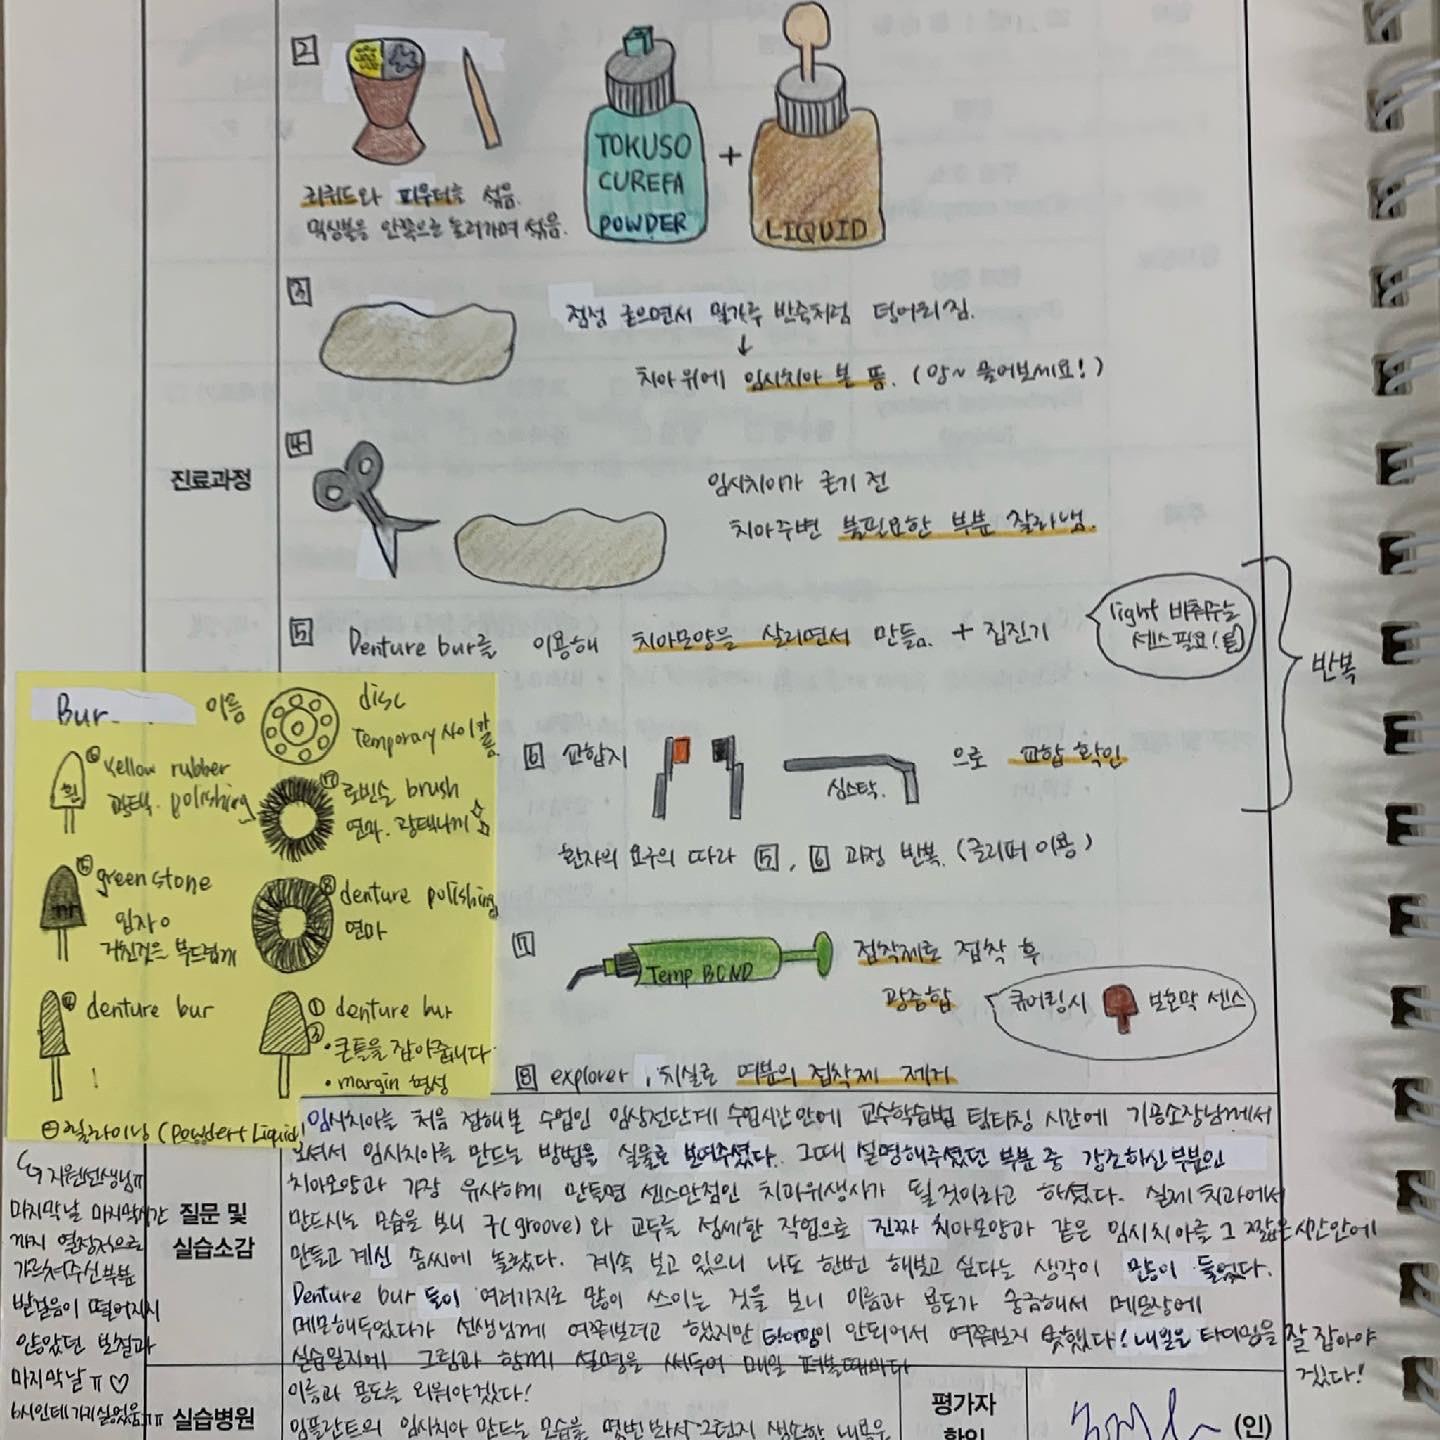 2
TOKUSO
CUREFA
POWDER
+
LIQUID
리퀴드와 파우더를 섞음.
믹싱볼을 안쪽으로 돌려가며 섞음.
3
점성 굳으면서 밀가루 반죽처럼 덩어리짐.
↓
치아위에 임시치아 본 뜸. (앙~ 물어보세요!)
4
임시치아가 굳기 전
치아주변 불필요한 부분 잘라냄.
진료과정
5 Denture bur를 이용해 치아모양을 살리면서 만듦. + 집진기
light 비춰주는
센스필요!
반복
6 교합지
심스탁.
으로 교합 확인
환자의 요구의 따라 5, 6 과정 반복. (글리퍼 이용)
7
Temp BOND
접착제로 접착 후
광중합
큐어링시 보호막 센스
8 explorer, 치실로 여분의 접착제 제거
Bur 이름
disc
temporary 사이 컷팅
yellow rubber
광택. polishing
로빈슨 brush
연마. 광택내기
green stone
입자
거친것은 부드럽게
denture polishing
연마
denture bur
① denture bur
③ • 큰틀을 잡아줍니다.
• margin 형성
릴라이닝 (Powder + Liquid)
지원선생님ㅠ
마지막날 마지막시간
까지 열정적으로
가르쳐주신부분
발걸음이 떨어지지
않았던 보철과
마지막날ㅠ♡
질문 및
실습소감
임시치아를 처음 접해본 수업인 임상전단계 수업시간안에 교수학습법 팀티칭 시간에 기공소장님께서
오셔서 임시치아를 만드는 방법을 실물로 보여주셨다. 그때 설명해주셨던 부분 중 강조하신부분인
치아모양과 가장 유사하게 만들면 센스만점인 치과위생사가 될것이라고 하셨다. 실제 치과에서
만드시는 모습을 보니 구(groove)와 교두를 정세한 작업으로 진짜 치아모양과 같은 임시치아를 그 짧은시간안에
만들고 계신 솜씨에 놀랐다. 계속 보고 있으니 나도 한번 해보고 싶다는 생각이 많이 들었다.
Denture bur 등이 여러가지로 많이 쓰이는 것을 보니 이름과 용도가 궁금해서 메모장에
메모해두었다가 선생님께 여쭤보려고 했지만 타이밍이 안되어서 여쭤보지 못했다! 내일은 타이밍을 잘 잡아야
겠다!
실습일지에 그림과 함께 설명을 써두어 매일 펴볼때마다
이름과 용도를 외워야겠다!
임플란트의 임시치아 만드는 모습을 몇번 봐서 그런지 생소한 내용은
실습병원
평가자
확인
(인)